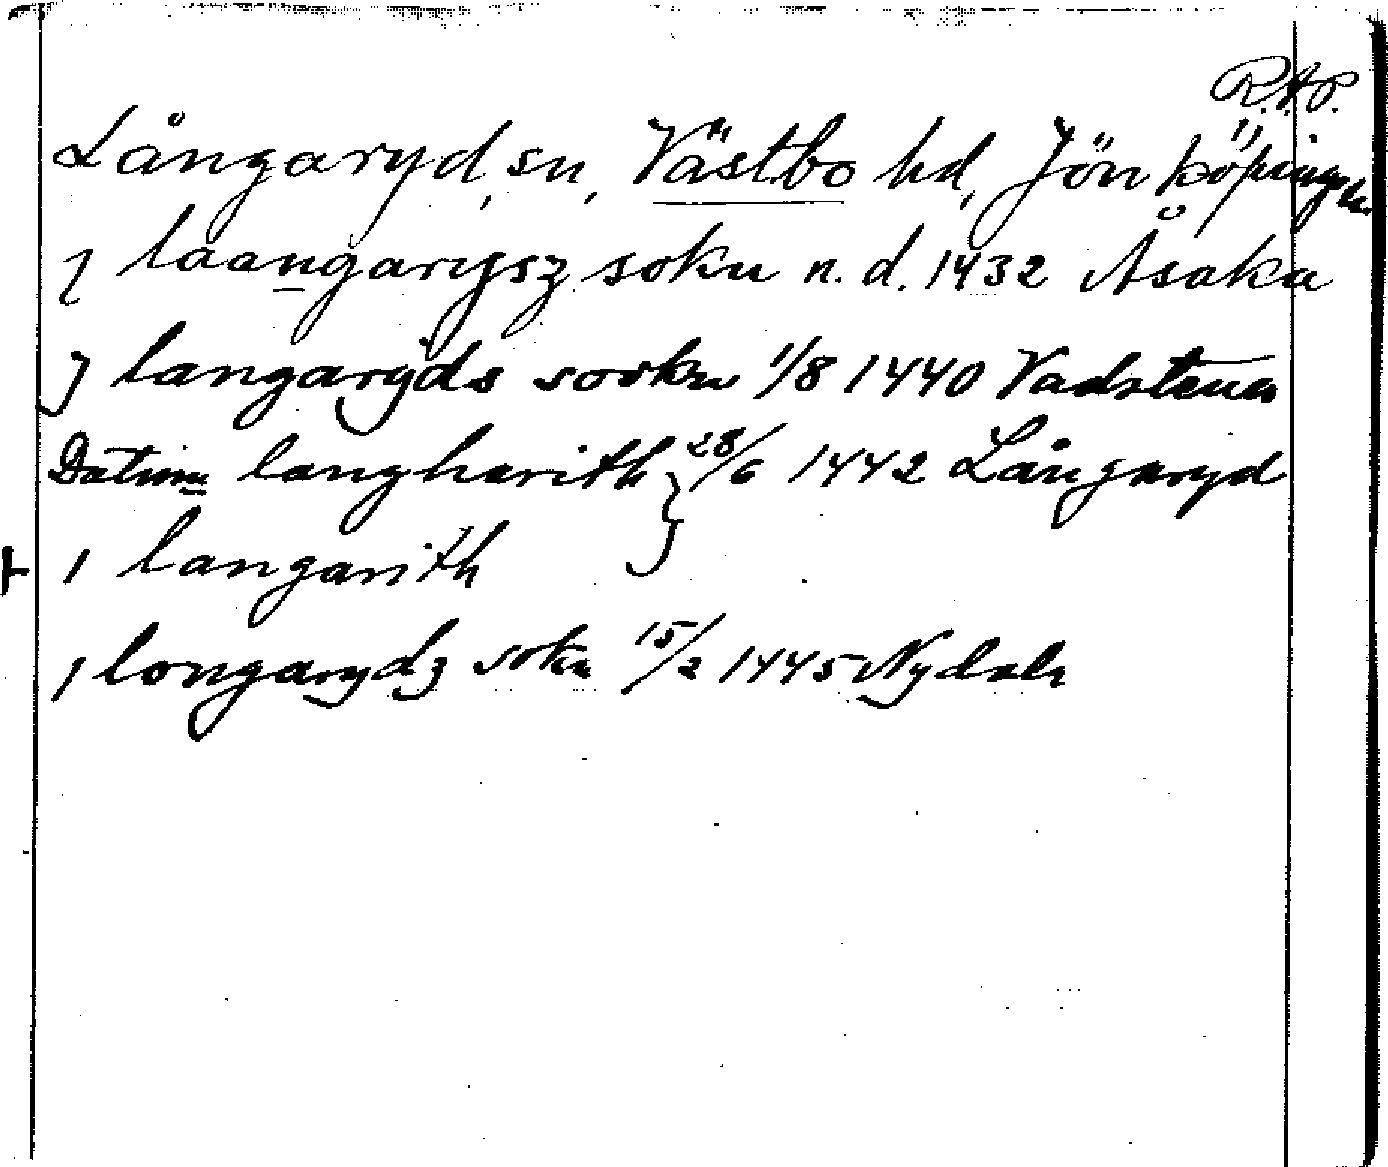 R.A.P.
Långaryd, sn, Västbo hd, Jönköpings
j laangarysz sokn n. d. 1432 Åsaka
j langaryds sookn 1/8 1440 Vadstena
Datum langharith } 28/6 1442 Långaryd
i langarith
i longarydz sokn 15/2 1445 Nydala